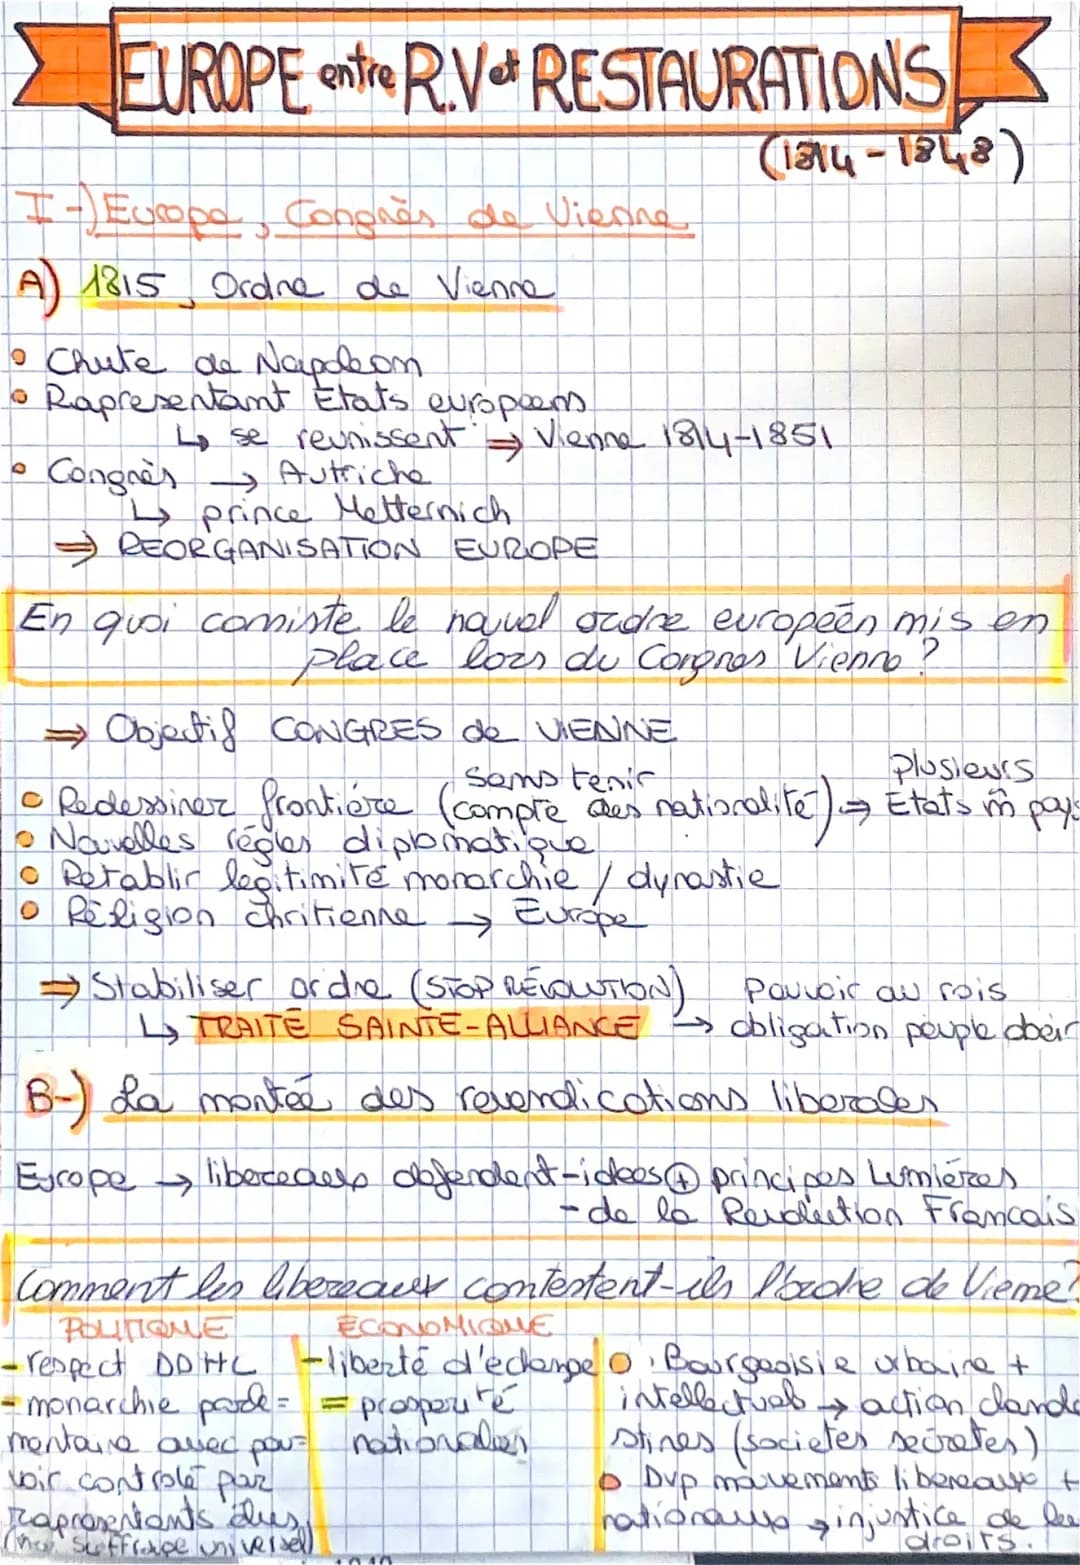 EUROPE entre R.V et RESTAURATIONS
(1814-1848)
I-) Europe, Congrès de Vienne
A) 1815, Ordre de Vienne
Chute de Napoleon
Rapresentant États européens
↳ se reunissent ⇒ Vienne 1814-1851
Congrès → Autriche
↳ prince Metternich
⇒ REORGANISATION EUROPE
En quoi consiste le nouvel ordre européen mis en
place lors du Congres Vienne ?
⇒ Objectif CONGRES de VIENNE
sans tenir plusieurs
Redessiner frontière (compte des nationalité) ⇒ États m̂ pays
Nouvelles régles diplomatique
Retablir legitimité monarchie / dynastie
Réligion chritienne → Europe
⇒ Stabiliser ordre (STOP RÉVOLUTION) Pouvoir au rois
↳ TRAITÉ SAINTE-ALLIANCE → obligation peuple obéir
B-) La monteé des revendications liberales
Europe → libereaux defendent -idees ⊕ principes Lumiéres
- de la Revolution Francais
Comment les libereaux contestent-ils l'ordre de Vienne?
POLITIQUE ÉCONOMIQUE
- respect DDHC - liberté d'echange Bourgeoisie urbaine +
- monarchie parle= = prosperité intellectuels → action clande
mentaire avec pou= nationales stines (societes secretes)
voir controlé par Dvp mouvements libereaux +
rapresentants élus nationaux → injustice de les
(no suffrage universel) droits.